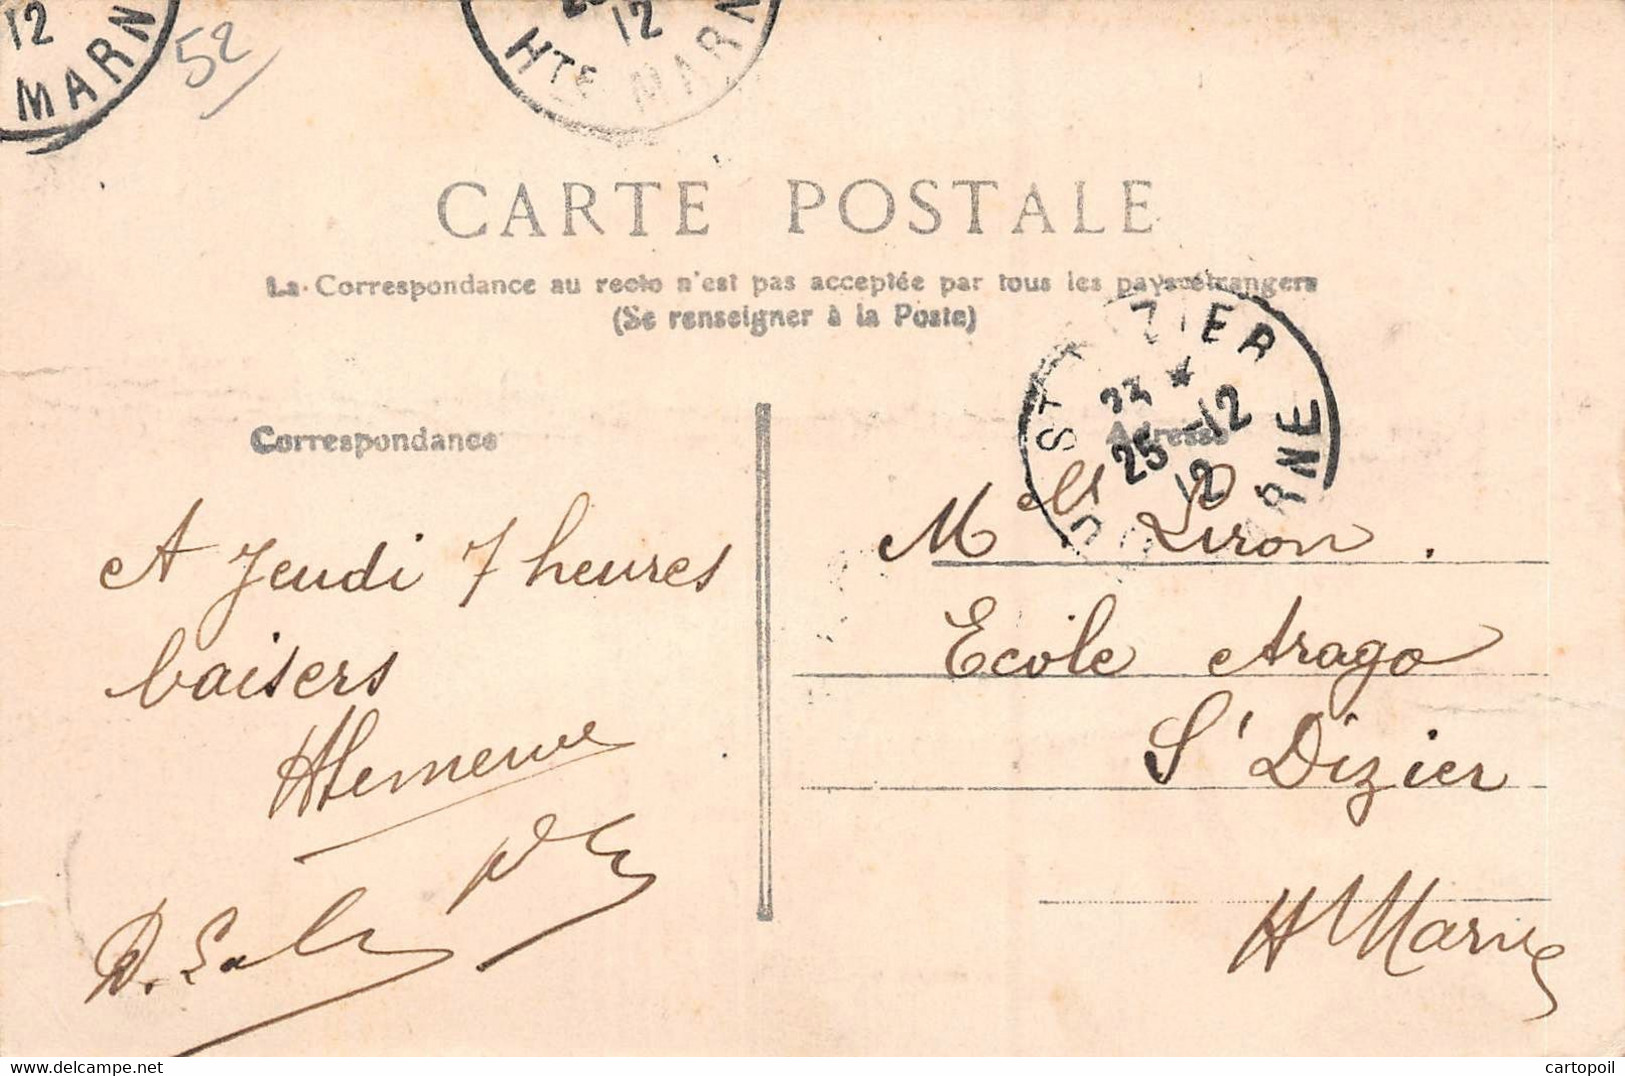 12
MARN
52
12
HTE MARN
CARTE POSTALE
La Correspondance au recto n'est pas acceptée par tous les pays étrangers
(Se renseigner à la Poste)
ST DIZIER
23 *
25-12
12
HTE MARNE
Correspondance
Adresse
A Jeudi 7 heures
baisers
Melle Piron.
Ecole Arago
St Dizier
H Marne
cartopoil